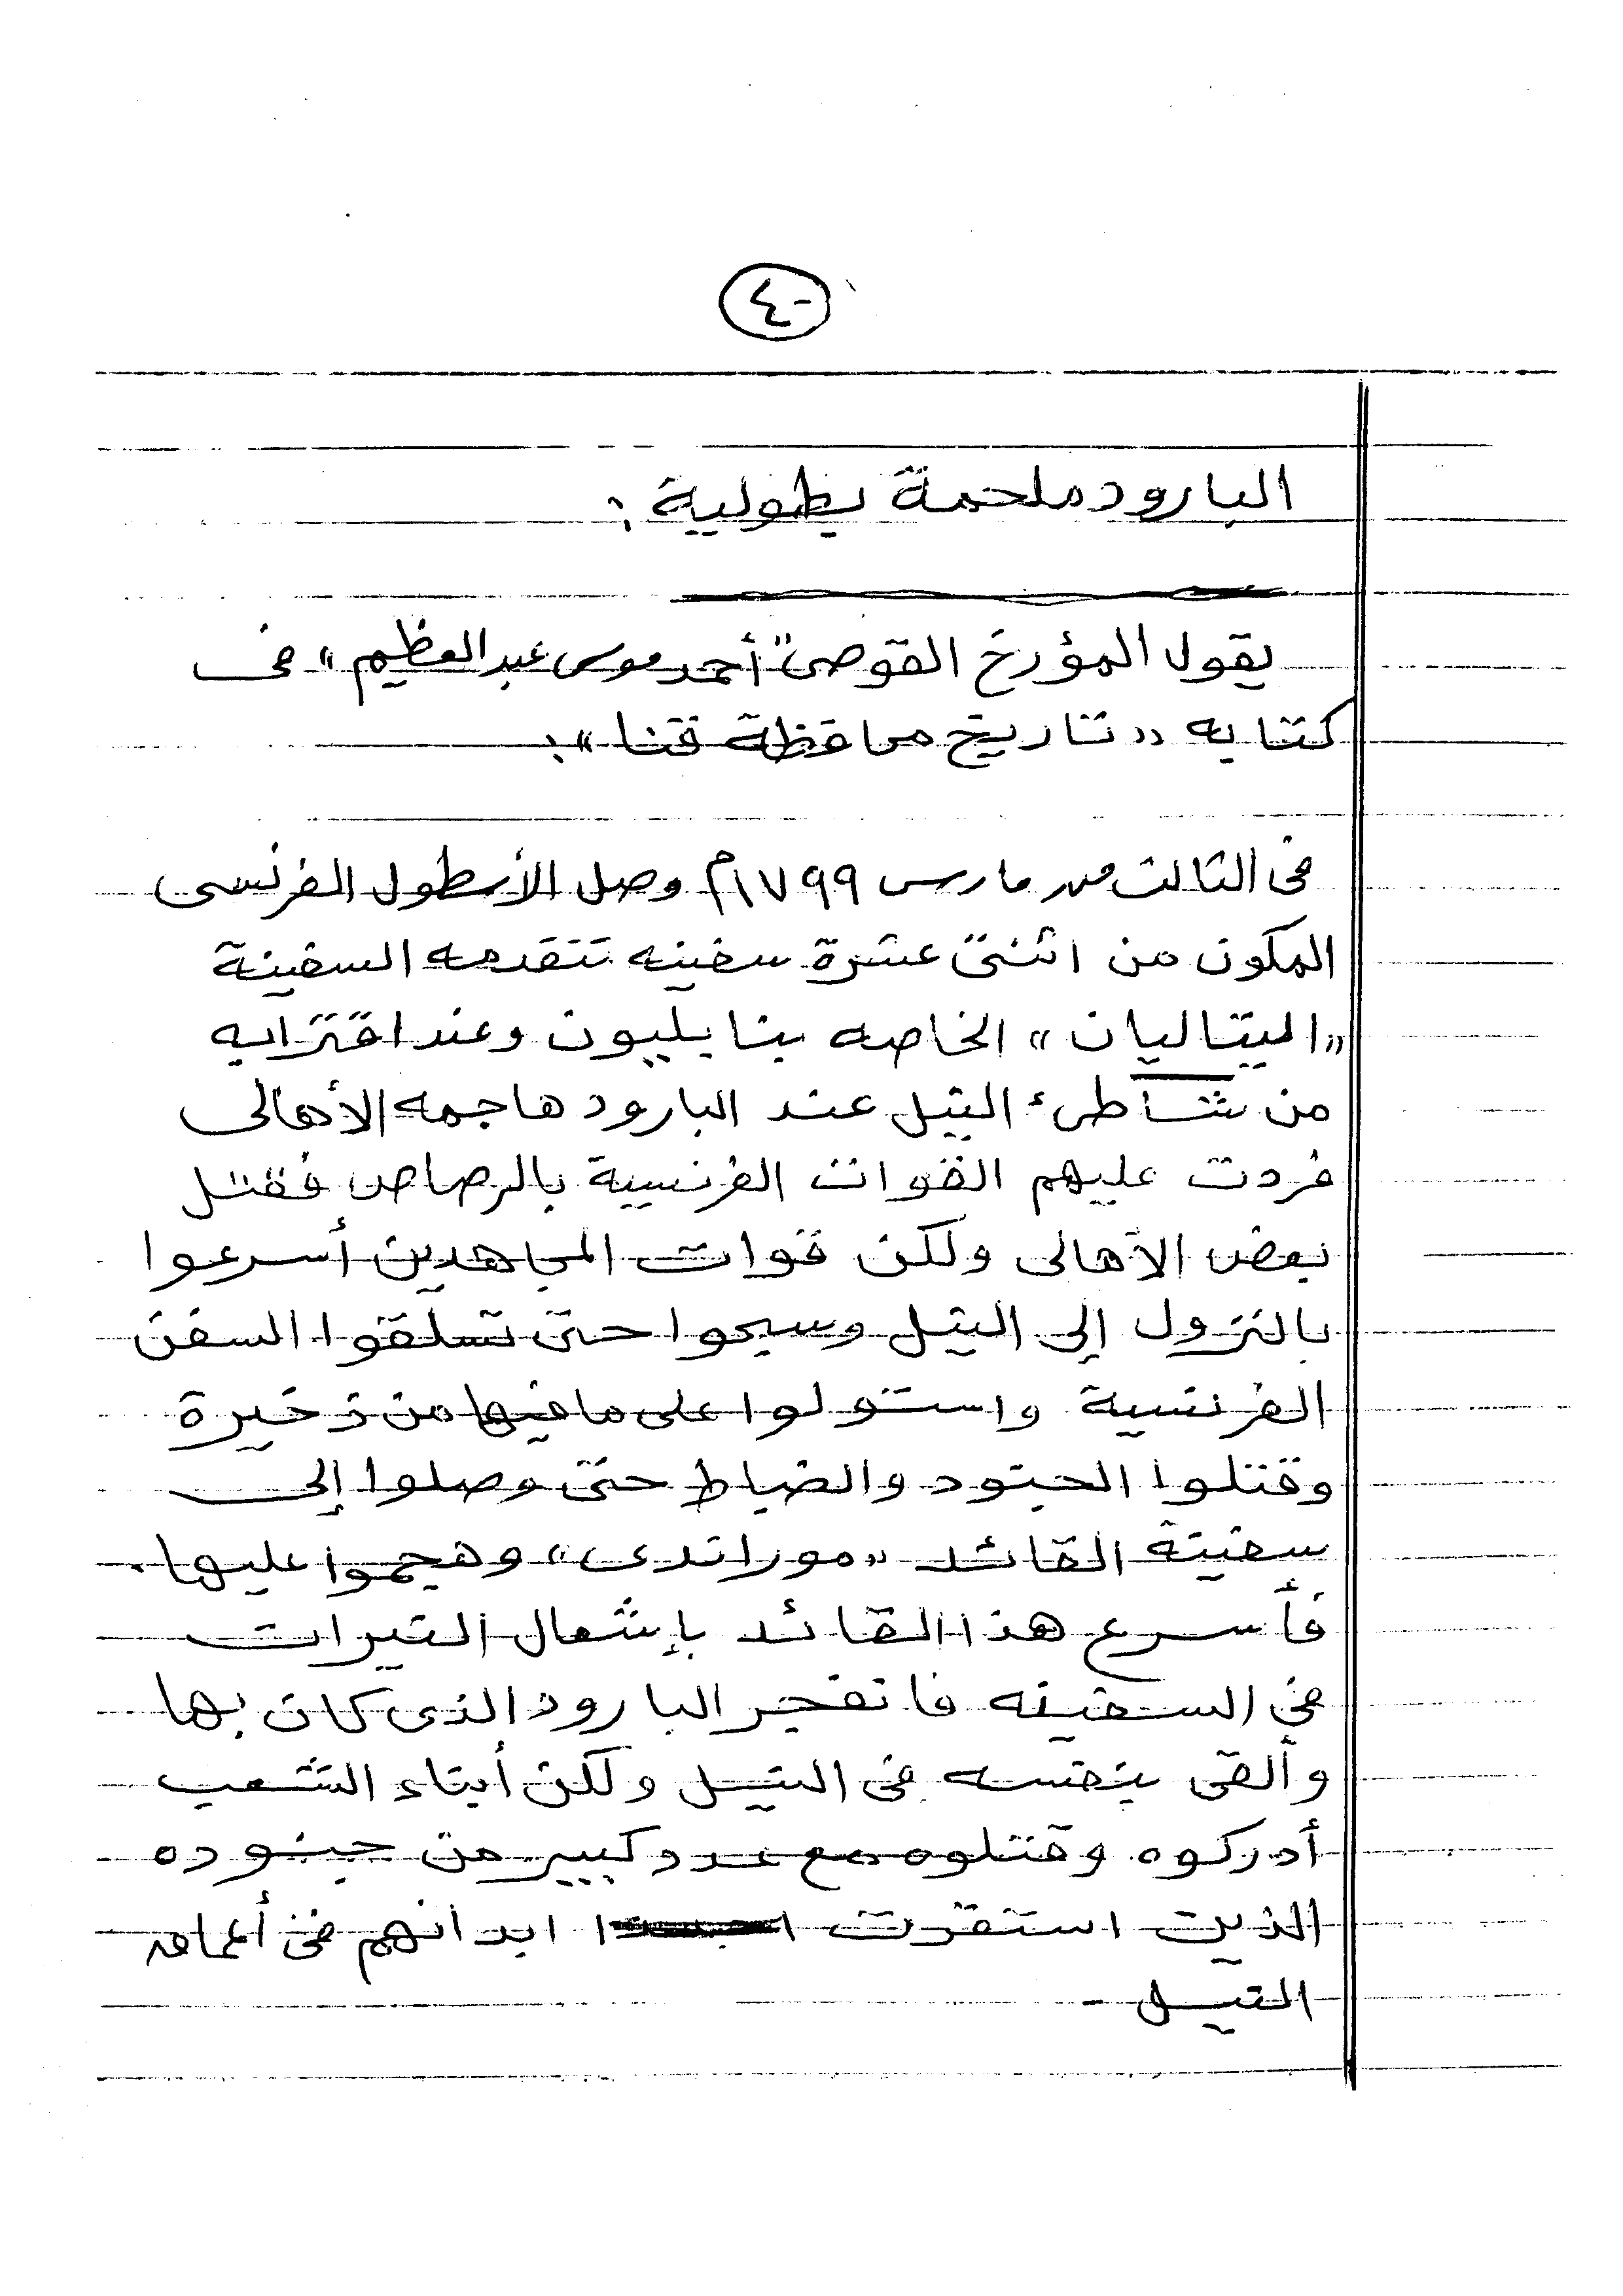 -٤
البارود ملحمة بطولية :
يقول المؤرخ القوصى "أحمد موسى عبد العظيم" فى
كتابه «تاريخ محافظة قنا»:
فى الثالث من مارس ١٧٩٩م وصل الأسطول الفرنسى
المكون من اثنتى عشرة سفينه تتقدمه السفينة
«الميتاليان» الخاصه بنابليون وعند اقترابه
من شاطىء النيل عند البارود هاجمه الأهالى
فردت عليهم القوات الفرنسية بالرصاص فقتل
بعض الأهالى ولكن قوات المجاهدين أسرعوا
بالنزول إلى النيل وسبحوا حتى تسلقوا السفن
الفرنسية واستولوا على ما فيها من ذخيرة
وقتلوا الجنود والضباط حتى وصلوا إلى
سفينة القائد «موراندى» وهجموا عليها.
فأسرع هذا القائد بإشعال النيران
فى السفينه فانفجر البارود الذى كان بها
وألقى بنفسه فى النيل ولكن أبناء الشعب
أدركوه وقتلوه مع عدد كبير من جنوده
الذين استقرت ابدانهم فى أعماق
النيل -